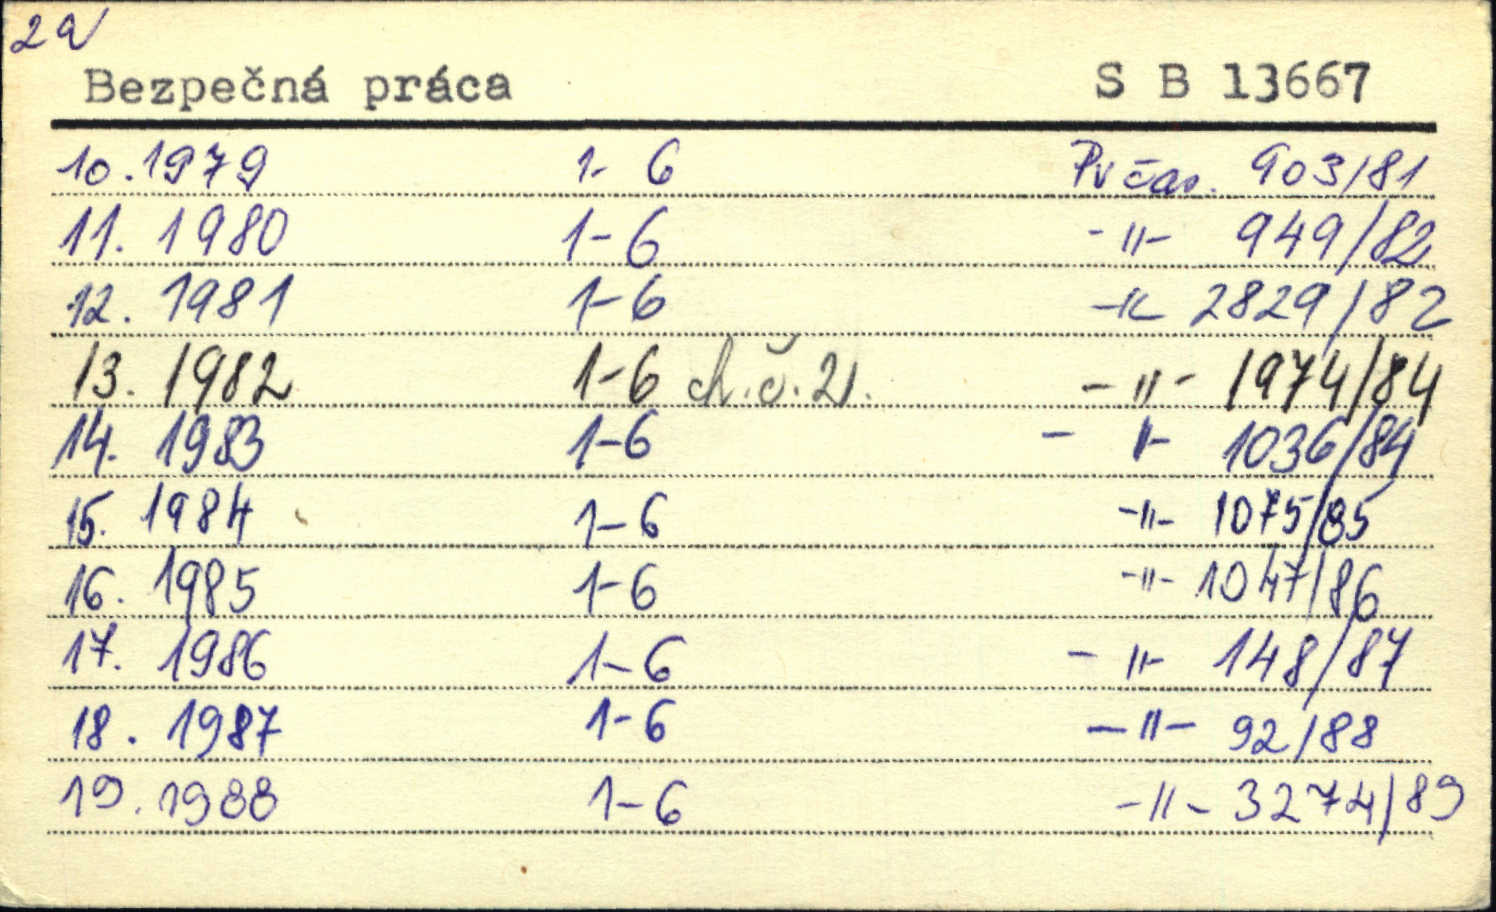 2a/
Bezpečná práca S B 13667
10. 1979 1-6 Pv čas. 903/81
11. 1980 1-6 -"- 949/82
12. 1981 1-6 -"- 2829/82
13. 1982 1-6 ch.č.2. -"- 1974/84
14. 1983 1-6 -"- 1036/84
15. 1984 1-6 -"- 1075/85
16. 1985 1-6 -"- 1047/86
17. 1986 1-6 -"- 148/87
18. 1987 1-6 -"- 92/88
19. 1988 1-6 -"- 3274/89